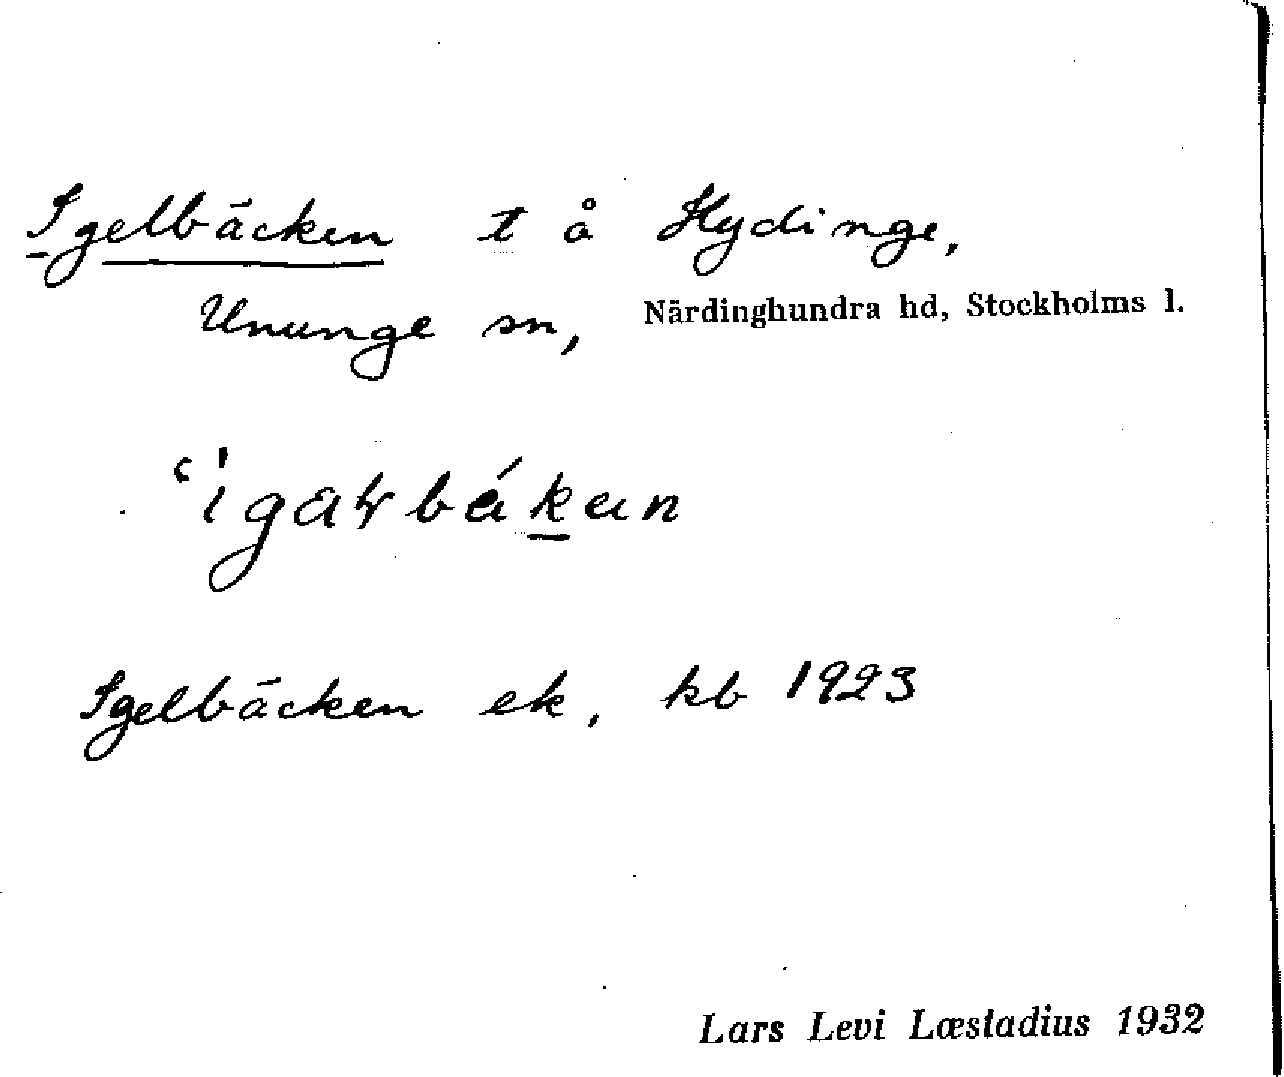 Igelbäcken t å Hydinge,
Ununge sn, Närdinghundra hd, Stockholms l.
Igelbäcken ek, kb 1923
Lars Levi Læstadius 1932